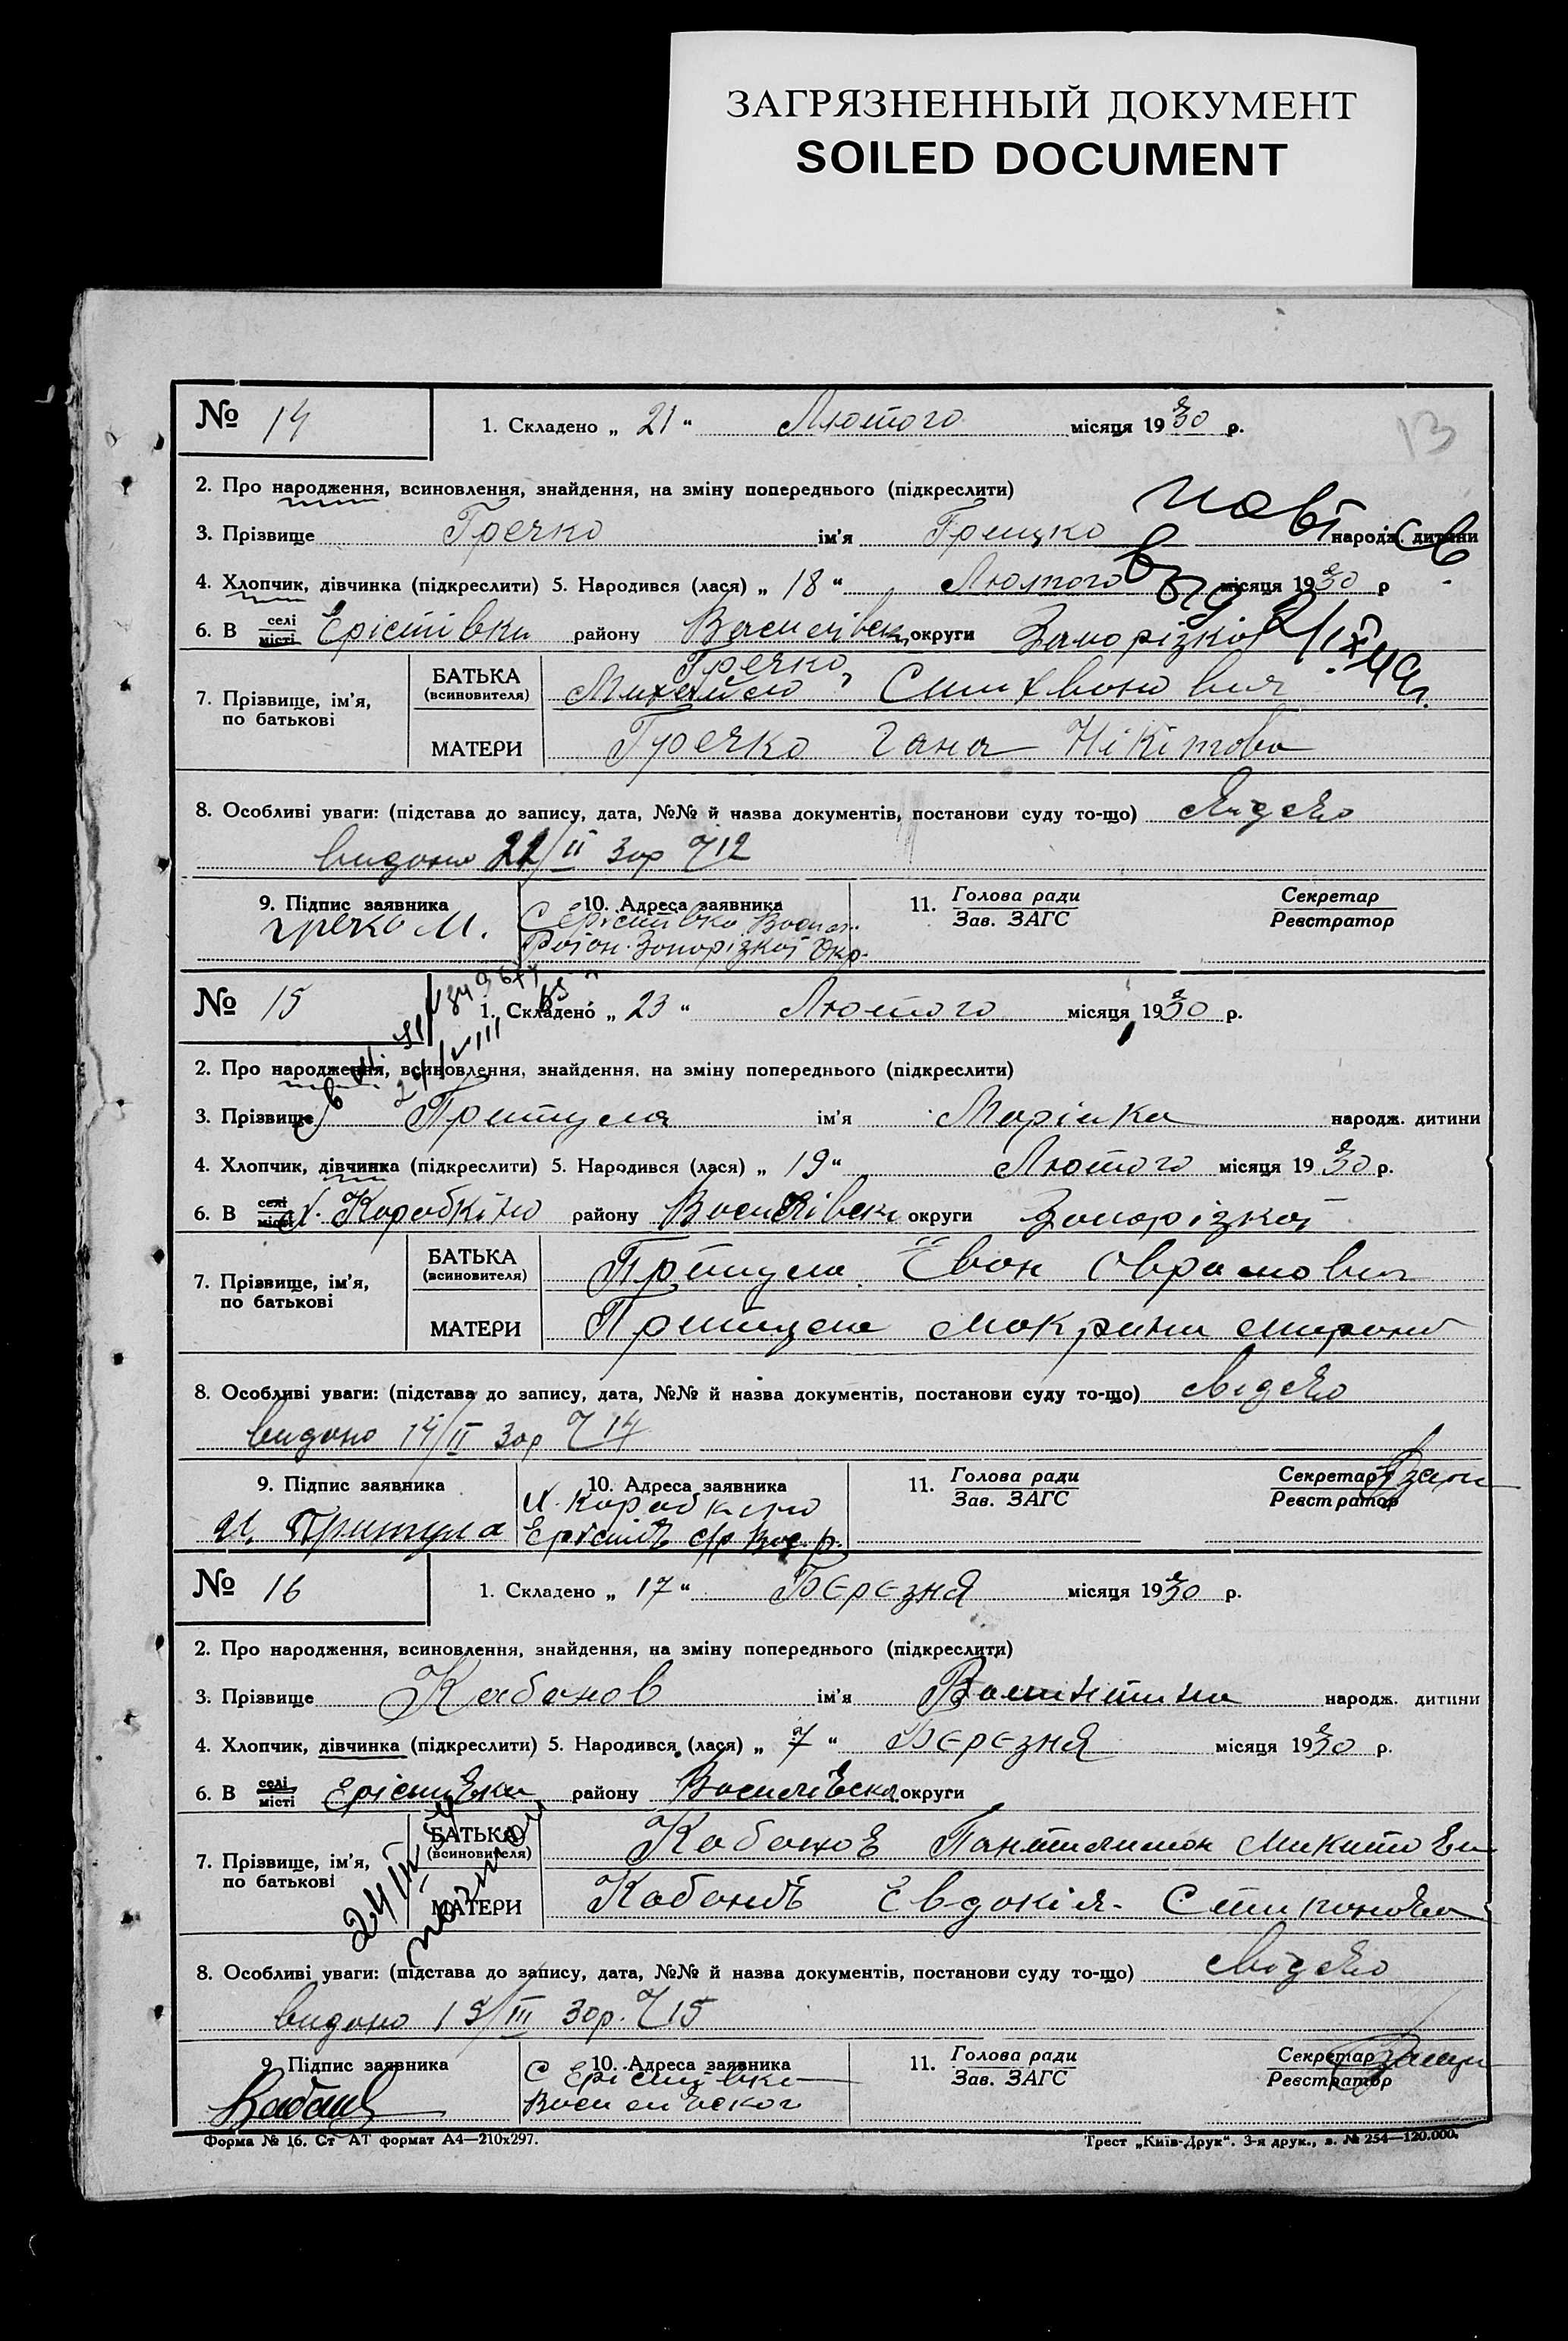 ЗАГРЯЗНЕННЫЙ ДОКУМЕНТ
SOILED DOCUMENT
13
№ 14
1. Складено „ 21 “ Лютого місяця 1930 р.
2. Про народження, всиновлення, знайдення, на зміну попереднього (підкреслити)
3. Прізвище Гречко ім'я Грицко народж. дитини
4. Хлопчик, дівчинка (підкреслити) 5. Народився (лася) „ 18 “ Лютого місяця 1930 р
6. В селі місті Ерістівки району Василівськ округи Запорізкої
7. Прізвище, ім'я, по батькові
БАТЬКА (всиновителя) Гречко
МАТЕРИ Гречко Гана Нікітова
8. Особливі уваги: (підстава до запису, дата, №№ й назва документів, постанови суду то-що)
видано 22/II 30р 12
9. Підпис заявника
10. Адреса заявника
11. Голова ради
Зав. ЗАГС
Секретар
Реєстратор
Гречко М.
С Ерістівка
Район. Запорізкої Окр.
№ 15
1. Складено „ 23 “ Лютого місяця 1930 р.
2. Про народження, всиновлення, знайдення, на зміну попереднього (підкреслити)
3. Прізвище Притула ім'я Марійка народж. дитини
4. Хлопчик, дівчинка (підкреслити) 5. Народився (лася) „ 19 “ Лютого місяця 1930 р.
6. В селі місті х. Коробкіно району Василівськ округи Запорізкої
7. Прізвище, ім'я, по батькові
БАТЬКА (всиновителя) Притула Еван Оврамович
МАТЕРИ Притула Макрина
8. Особливі уваги: (підстава до запису, дата, №№ й назва документів, постанови суду то-що)
видано 14/II 30р 14
9. Підпис заявника
10. Адреса заявника
11. Голова ради
Зав. ЗАГС
Секретар
Реєстратор
Притула
Х. Коробкино
№ 16
1. Складено „ 17 “ Березня місяця 1930 р.
2. Про народження, всиновлення, знайдення, на зміну попереднього (підкреслити)
3. Прізвище Кабанов ім'я Валинтина народж. дитини
4. Хлопчик, дівчинка (підкреслити) 5. Народився (лася) „ 7 “ Березня місяця 1930 р.
6. В селі місті Ерістівки району Василівськ округи
7. Прізвище, ім'я, по батькові
БАТЬКА (всиновителя) Кабанов Пантилимон
МАТЕРИ Евдокія
8. Особливі уваги: (підстава до запису, дата, №№ й назва документів, постанови суду то-що)
видано 15/III 30р. 15
9. Підпис заявника
10. Адреса заявника
11. Голова ради
Зав. ЗАГС
Секретар
Реєстратор
С Ерістівка
Форма № 16. Ст АТ формат А4—210х297.
Трест „Київ-Друк“. 3-я друк., з. № 254—120.000.